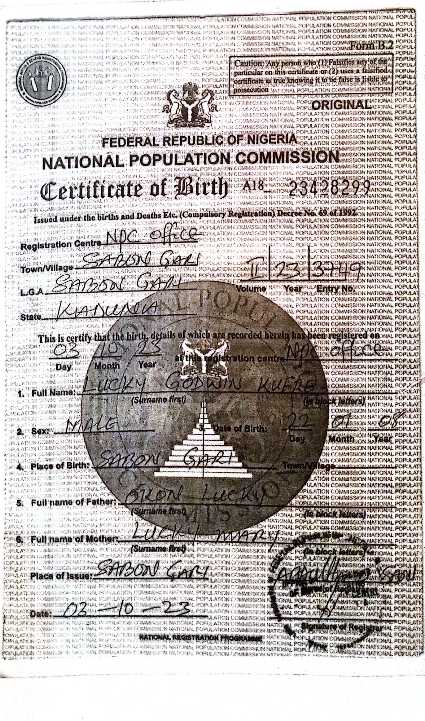 Form B.2
Caution: Any person who (1) Falsifies any of the
particular on this certificate or (2) uses a falsified
certificate as true knowing it to be false is liable to
prosecution
ORIGINAL
FEDERAL REPUBLIC OF NIGERIA
NATIONAL POPULATION COMMISSION
Certificate of Birth A18 23428299
Issued under the births and Deaths Etc. (Compulsory Registration) Decree No. 69 of 1992.
Registration Centre NPC office
Town/Village SABON GARI
L.G.A SABON GARI
II 23 3749
Volume Year Entry No.
State KADUNA
This is certify that the birth, details of which are recorded herein has been registered on
03 10 23 at this registration centre NPC office
Day Month Year
1. Full Name: LUCKY GODWIN KUFRE
(Surname first) (in block letters)
2. Sex: MALE Date of Birth: 22 01 08
Day Month Year
4. Place of Birth: SABON GARI Town/Village
5. Full name of Father: OKON LUCKY
(Surname first) (in block letters)
6. Full name of Mother: LUCKY MARY
(Surname first) (in block letters)
Place of Issue: SABON GARI
Signature of Registrar
Date: 03-10-23
NATIONAL REGISTRATION PROGRAMME